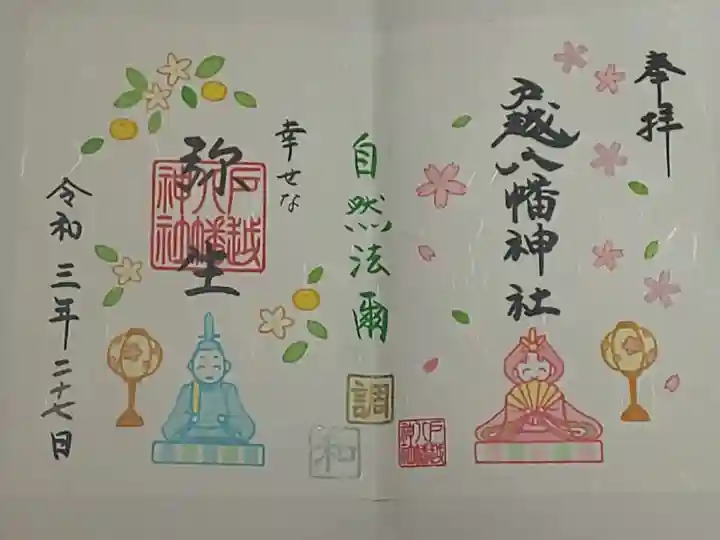 奉拝
戸越八幡神社
戸越八幡神社
自然法爾
調
和
幸せな
弥生
戸越八幡神社
令和三年二十七日